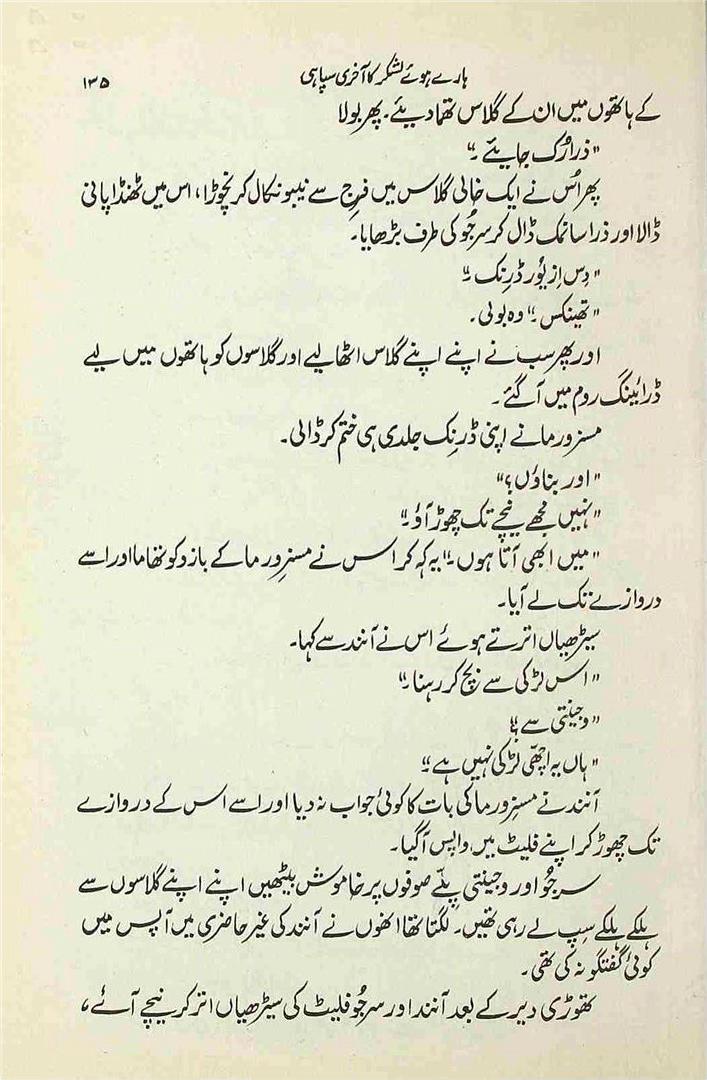 ہارے ہوئے لشکر کا آخری سپاہی ۱۳۵
کے ہاتھوں میں ان کے گلاس تھما دیئے۔ پھر بولا
"ذرا رُک جایئے۔"
پھر اُس نے ایک خالی گلاس میں فرج سے نیبو نکال کر نچوڑا، اس میں ٹھنڈا پانی
ڈالا اور ذرا سا نمک ڈال کر سرجُو کی طرف بڑھایا۔
"دِس اِز یُور ڈرنک۔"
"تھینکس۔" وہ بولی۔
اور پھر سب نے اپنے اپنے گلاس اٹھا لیے اور گلاسوں کو ہاتھوں میں لیے
ڈرائینگ روم میں آ گئے۔
مسز ورما نے اپنی ڈرنک جلدی ہی ختم کر ڈالی۔
"اور بناؤں؟"
"نہیں مجھے نیچے تک چھوڑ آؤ۔"
"میں ابھی آتا ہوں۔" یہ کہہ کر اس نے مسز ورما کے بازو کو تھاما اور اسے
دروازے تک لے آیا۔
سیڑھیاں اترتے ہوئے اس نے آنند سے کہا۔
"اس لڑکی سے بچ کر رہنا۔"
"وجینتی سے؟"
"ہاں یہ اچھّی لڑکی نہیں ہے۔"
آنند نے مسز ورما کی بات کا کوئی جواب نہ دیا اور اسے اس کے دروازے
تک چھوڑ کر اپنے فلیٹ میں واپس آ گیا۔
سرجُو اور وجینتی پِلّے صوفوں پر خاموش بیٹھیں اپنے اپنے گلاسوں سے
ہلکے ہلکے سِپ لے رہی تھیں۔ لگتا تھا انھوں نے آنند کی غیر حاضری میں آپس میں
کوئی گفتگو نہ کی تھی۔
تھوڑی دیر کے بعد آنند اور سرجُو فلیٹ کی سیڑھیاں اتر کر نیچے آئے،